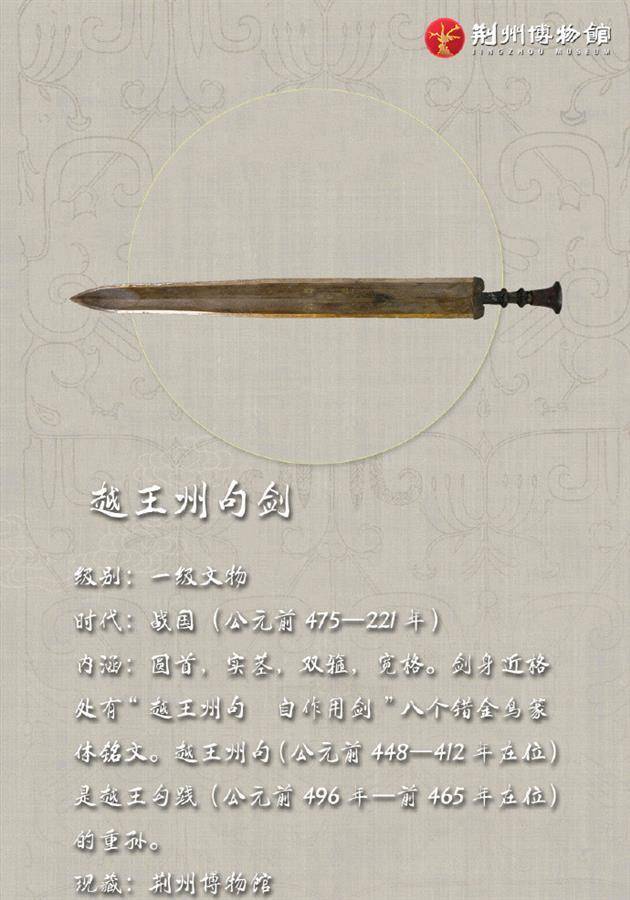 荆州博物館
JINGZHOU MUSEUM
越王州句剑
级别：一级文物
时代：战国（公元前475—221年）
内涵：圆首，实茎，双箍，宽格。剑身近格
处有“越王州句　自作用剑”八个错金鸟篆
体铭文。越王州句（公元前448—412年在位）
是越王勾践（公元前496年—前465年在位）
的重孙。
现藏：荆州博物馆